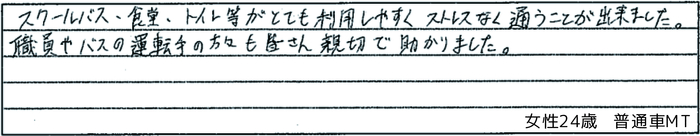 スクールバス、食堂、トイレ等がとても利用しやすくストレスなく通うことが出来ました。
職員やバスの運転手の方々も皆さん親切で助かりました。
女性24歳 普通車MT